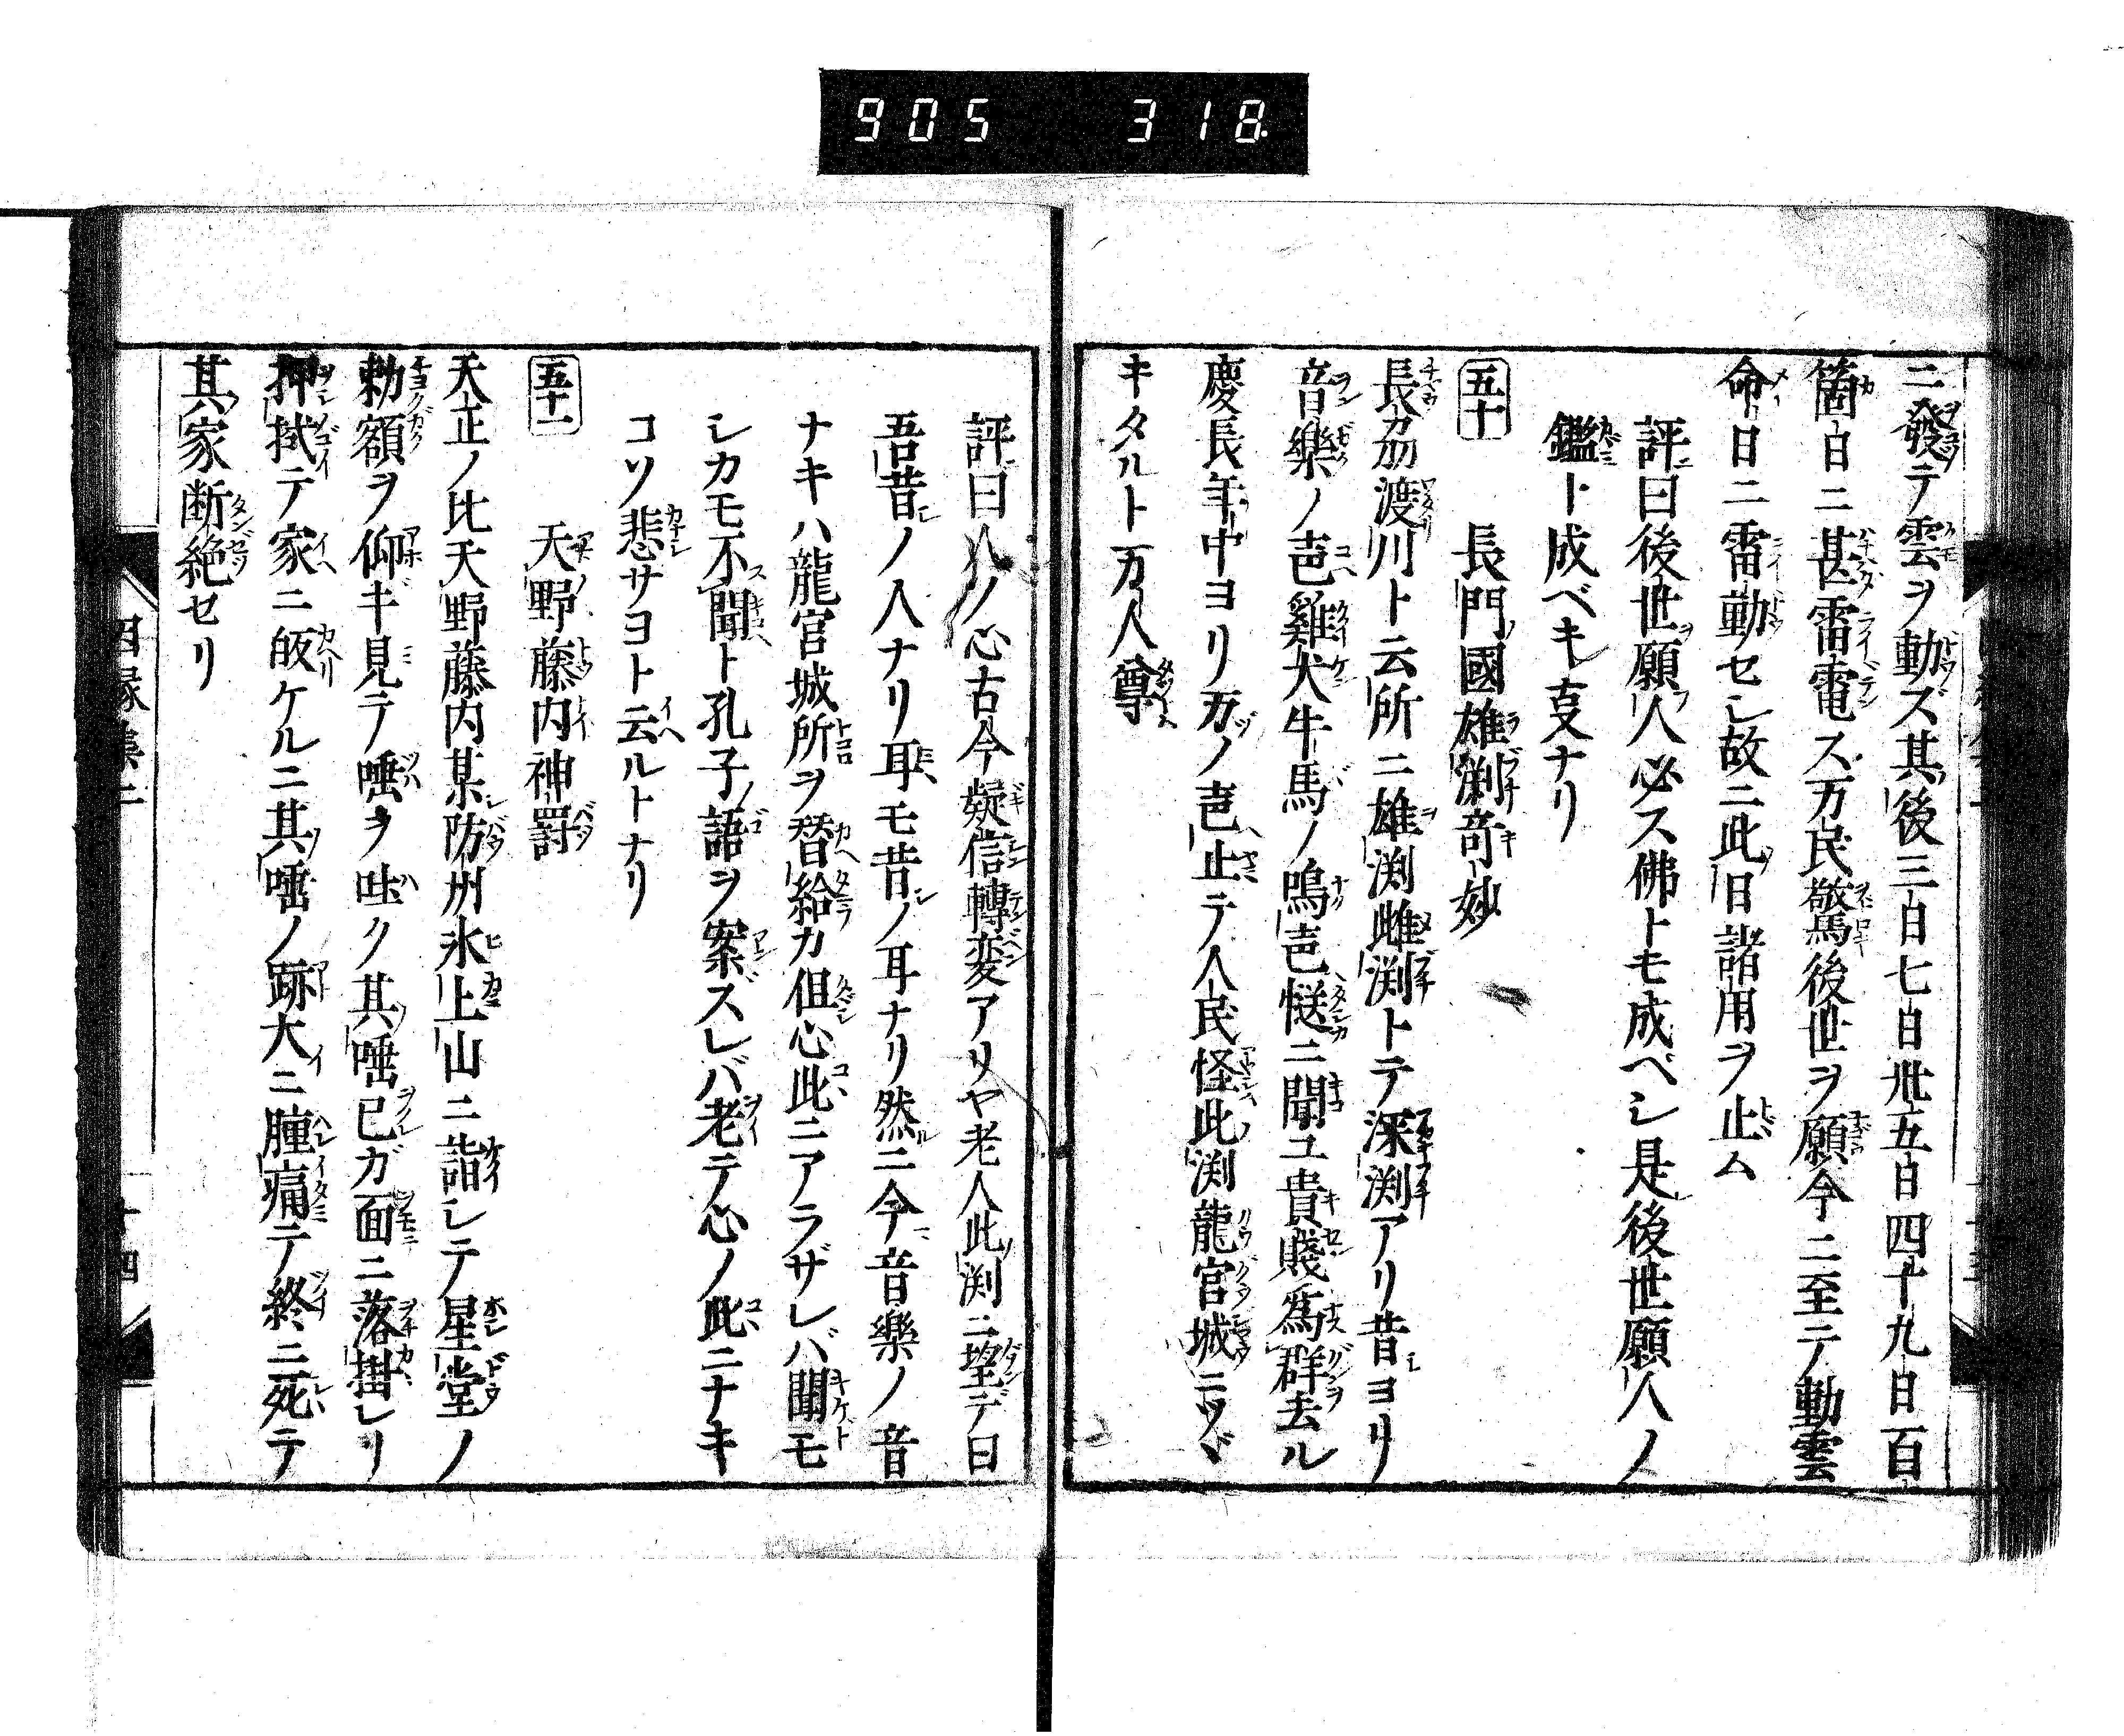 905 318
ニ發テ雲ヲ動ズ其後三日七日卅五日四十九日百
箇日ニ甚雷電ス万民驚後世ヲ願今ニ至テ動雲
命日ニ雷動セシ故ニ此日諸用ヲ止ム
評曰後世願人必ス佛トモ成ベシ是後世願人ノ
鑑ト成ベキ㕝ナリ
五十 長門國雄渕竒妙
長刕渡川ト云所ニ雄渕雌渕トテ深渕アリ昔ヨリ
音樂ノ声雞犬牛馬ノ鳴声慥ニ聞ユ貴賤爲群去ル
慶長年中ヨリ万ノ声止テ人民怪此渕龍宮城ニツヾ
キタルト万人尊
評曰人ノ心古今疑信轉変アリヤ老人此渕ニ望デ曰
吾昔ノ人ナリ耳モ昔ノ耳ナリ然ニ今音樂ノ音
ナキハ龍宮城所ヲ替給カ但心此ニアラザレバ聞モ
シカモ不聞ト孔子語ヲ案ズレバ老テ心ノ此ニナキ
コソ悲サヨト云ルトナリ
五十一 天野藤内神罰
天正ノ比天野藤内某防州氷上山ニ詣シテ星堂ノ
勅額ヲ仰キ見テ唾ヲ吐ク其唾已ガ面ニ落掛レリ
押拭テ家ニ皈ケルニ其唾ノ跡大ニ腫痛テ終ニ死テ
其家断絶セリ